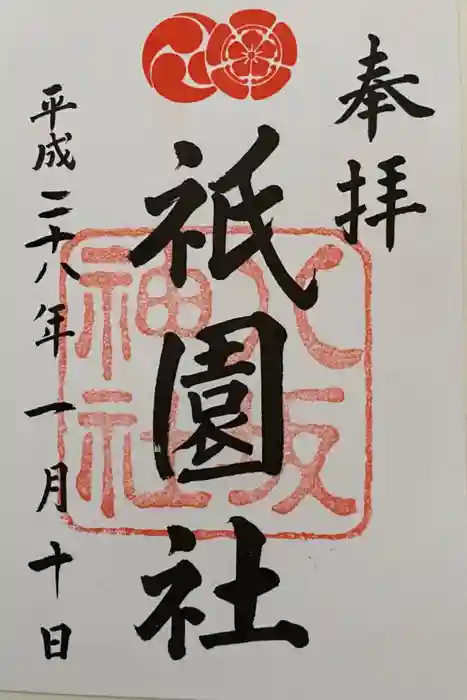 奉拝
八坂
神社
祇園社
平成二十八年一月十日